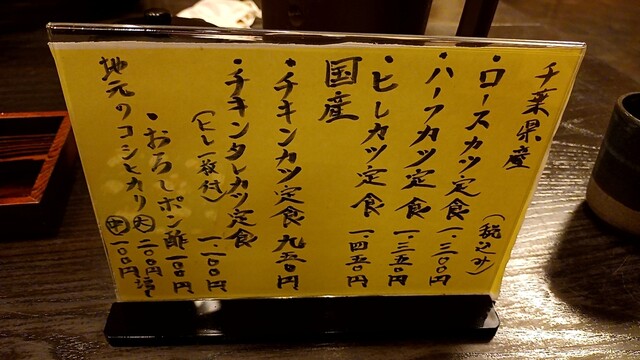 千葉県産
(税込み)
・ロースカツ定食 一、三〇〇円
・ハーフカツ定食 一、三五〇円
・ヒレカツ定食 一、四五〇円
国産
・チキンカツ定食 九五〇円
・チキンタレカツ定食 一、一〇〇円
(ヒレ一枚付)
・おろしポン酢 一〇〇円
地元のコシヒカリ 大 二〇〇円増し
中 一〇〇円